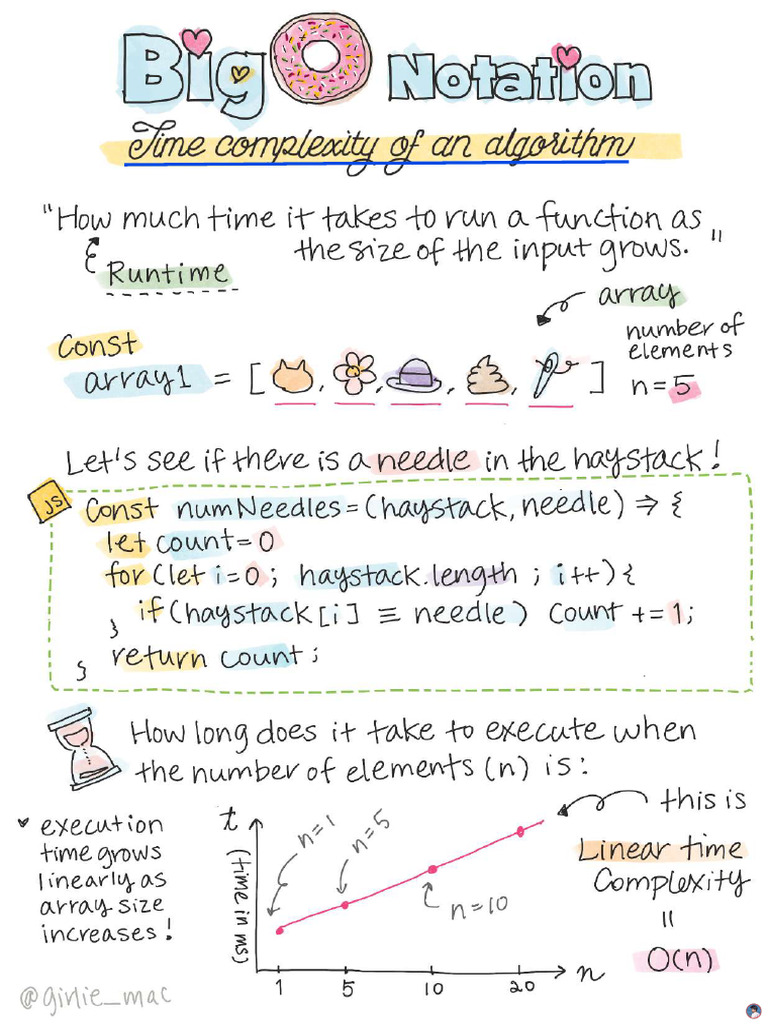 Big O Notation
Time complexity of an algorithm
"How much time it takes to run a function as
the size of the input grows."
Runtime
array
number of
elements
n=5
Const
array1 = [ , , , , ]
Let's see if there is a needle in the haystack!
JS
Const numNeedles = (haystack, needle) ⇒ {
let count = 0
for (let i=0; haystack.length; i++) {
if (haystack[i] ≡ needle) Count += 1;
}
return count;
}
How long does it take to execute when
the number of elements (n) is:
execution
time grows
linearly as
array size
increases!
t
(time in ms)
n=1
n=5
n=10
1 5 10 20
n
this is
Linear time
Complexity
=
O(n)
@girlie_mac